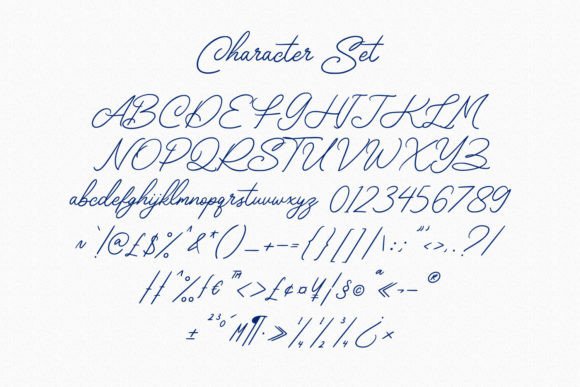 Character Set
ABCDEFGHIJKLM
NOPQRSTUVWXYZ
abcdefghijklmnopqrstuvwxyz 0123456789
~`!@£$%^&*()_+-={}[]|\:;"'<>,.?/
ƒ‹^‰ƒ€™<>£¢¤¥¦§©ª«¬-®
±²³°´µ¶·»¼½¾¿×